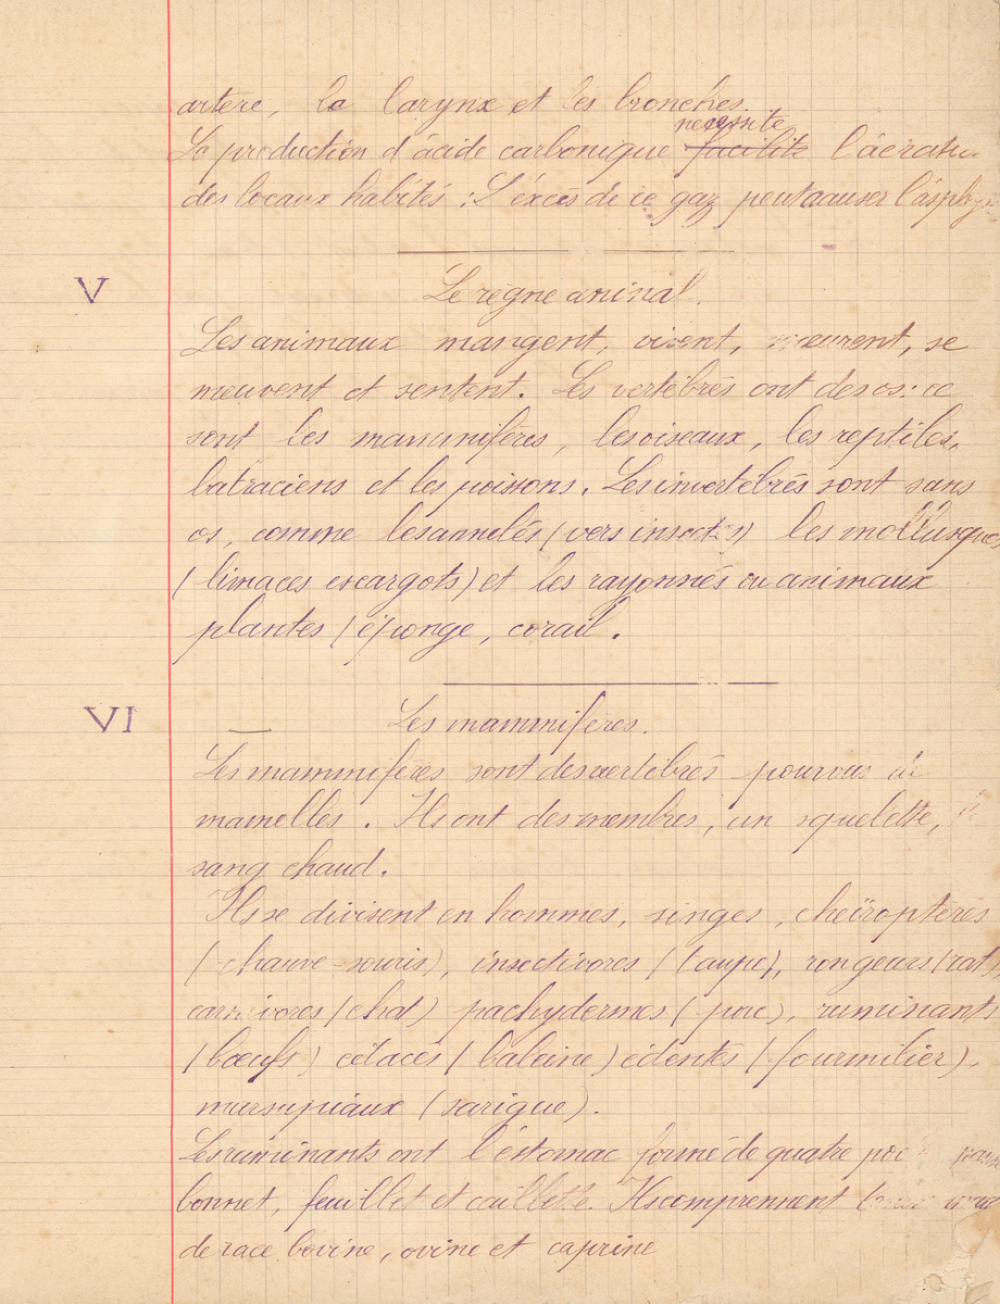 artère, la larynx et les bronches.
nécessite
La production d'acide carbonique facilite l'aération
des locaux habités : L'éxcès de ce gaz peut causer l'asphyxie
V
Le règne animal.
Les animaux mangent, vivent, meurent, se
meuvent et sentent. Les vertébrés ont des os : ce
sont les mammifères, les oiseaux, les reptiles,
batraciens et les poissons. Les invertébrés sont sans
os, comme les annelés (vers insectes) les mollusques
(limaces escargots) et les rayonnés ou animaux
plantes (éponge, corail.
VI
Les mammifères.
Les mammifères sont des vertébrés pourvus de
mamelles. Ils ont des membres, un squelette, le
sang chaud.
Ils se divisent en hommes, singes, cheïroptères
(chauve-souris), insectivores (taupe), rongeurs (rat)
carnivores (chat) pachydermes (porc), ruminants
(bœufs) cétacés (baleine) édentés (fourmilier),
marsupiaux (sarigue).
Les ruminants ont l'éstomac formé de quatre
bonnet, feuillet et caillette. Ils comprennent
de race bovine, ovine et caprine